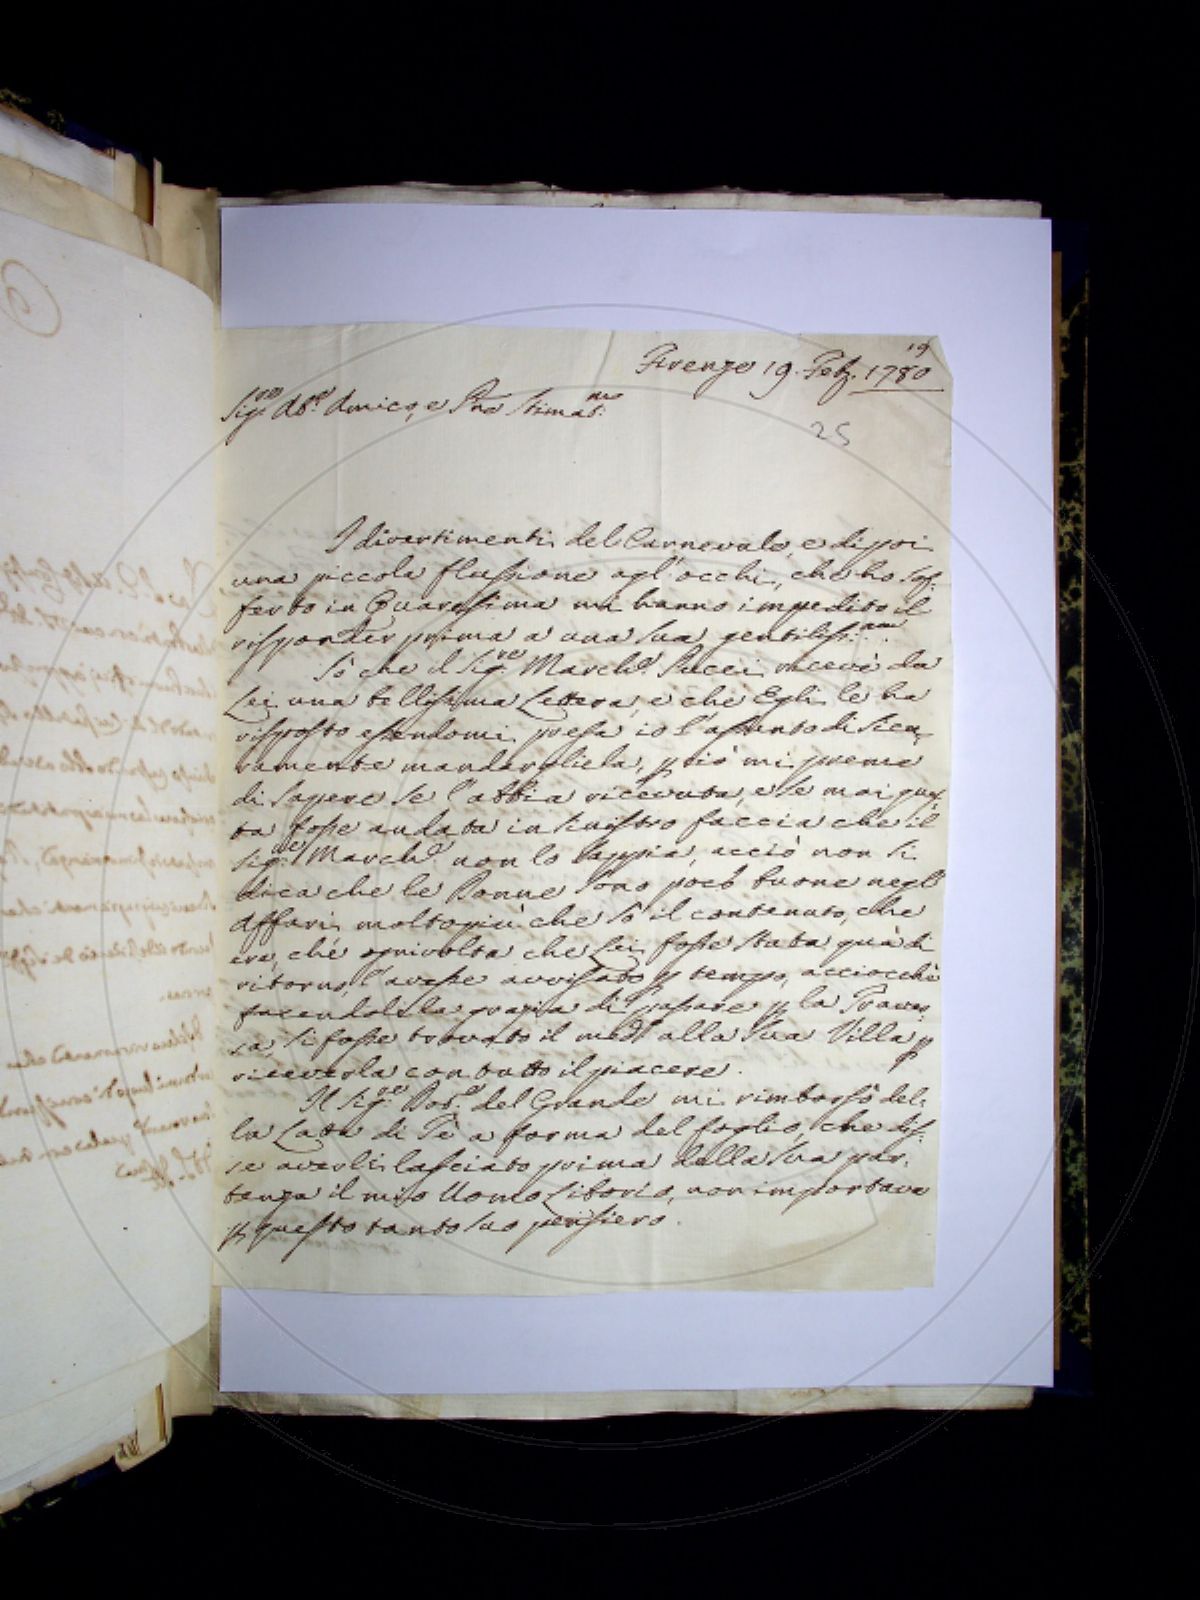 19
Firenze 19. Feb. 1780
Sig.re Ab.e Amico, e Pne Stimas.mo
25
I divertimenti del Carnevale, e di poi
una piccola flussione agl'occhi, che ho sof-
ferto in Quaresima mi hanno impedito il
risponder prima a una sua gentiliss.ma
Sò che il Sig.re March.e Pucci ricevè da
Lei una bellissima Lettera, e che Egli le ha
risposto essendomi presa io l'assunto di sicu-
ramente mandargliela, p ciò mi preme
di sapere se l'abbia ricevuta, e se mai ques-
ta fosse andata in sinistro faccia che il
Sig.re March.e non lo sappia, acciò non si
dica che le Donne sono poco buone negl'
Affari moltopiù che sò il contenuto, che
era, che ognivolta che Lei fosse stata quà di
ritorno, l'avesse avvisato p tempo, acciocchè
facendoli la grazia di passare p la Traver-
sa, si fosse trovato il med.o alla sua Villa p
riceverla con tutto il piacere.
Il Sig.re Dot.e del Grande mi rimborsò del-
la Lata di Tè a forma del foglio, che dis-
se averli lasciato prima della sua par-
tenza il mio Uomo Liborio, non importava
p questo tanto suo pensiero.